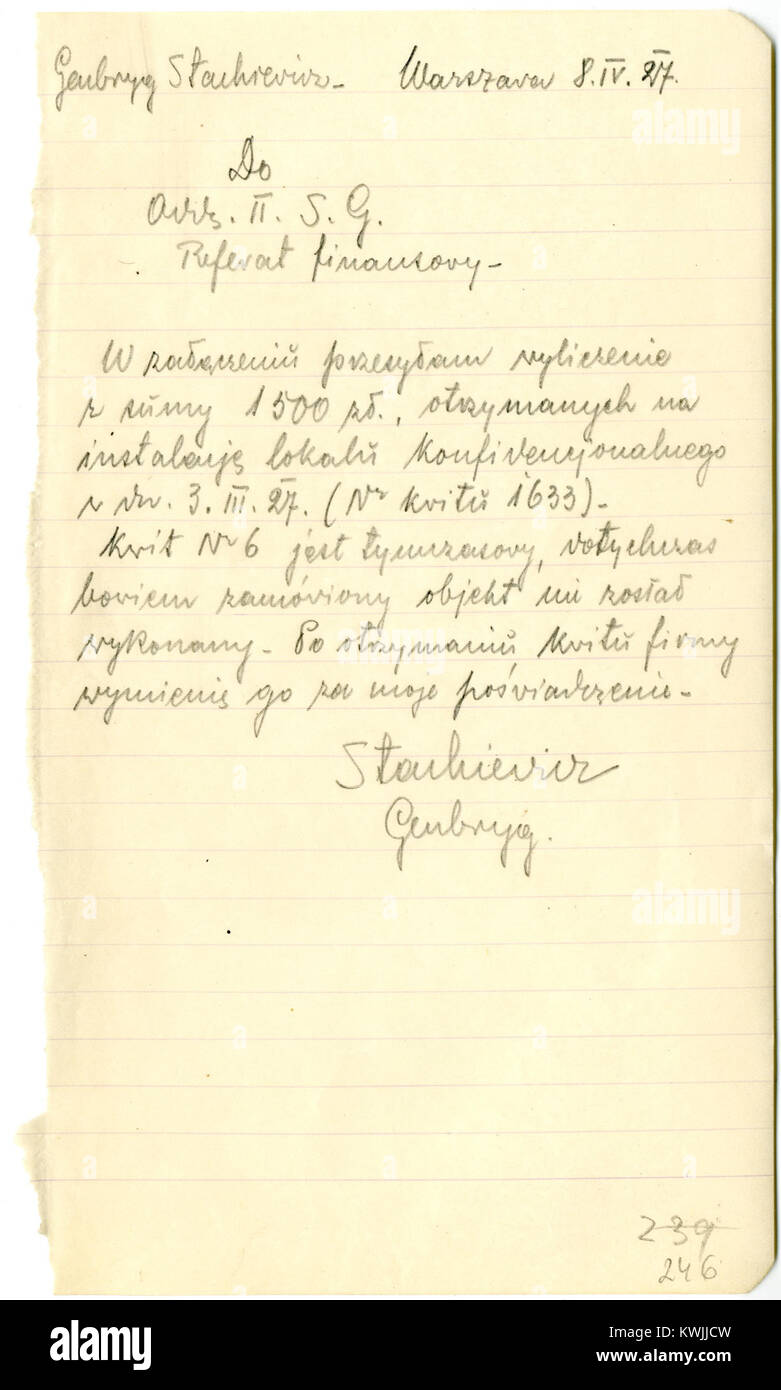 Genbryg Stachiewicz - Warszawa 8.IV.27.
Do
Oddz. II. S. G.
Referat finansowy -
W załączeniu przesyłam wyliczenie
z sumy 1500 zł., otrzymanych na
instalację lokalu konfidencjonalnego
w dn. 3.III.27. (Nr kwitu 1633) -
Kwit Nr 6 jest tymczasowy, dotychczas
bowiem zamówiony objekt nie został
wykonany - Po otrzymaniu kwitu firmy
wymienię go za moje poświadczenie -
Stachiewicz
Genbryg.
239
246
alamy
Image ID: KWJJCW
www.alamy.com